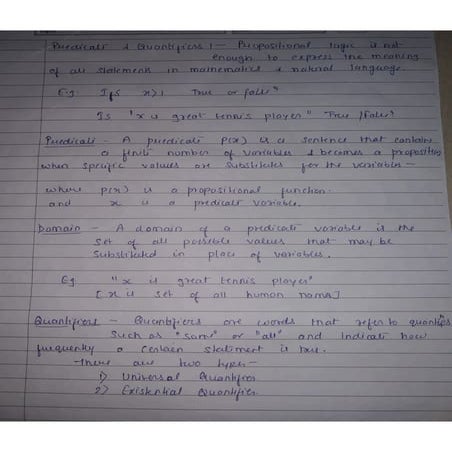 Predicate & Quantifiers :- Propositional logic is not
enough to express the meaning
of all statement in mathematics & natural language.
Eg Is x>1 True or false"
Is "x is great tennis player" True /false?
Predicate - A predicate P(x) is a sentence that contains
a finite number of variables & becomes a proposition
when specific values are substituted for the variables -
where P(x) is a propositional function.
and x is a predicate variable.
Domain - A domain of a predicate variable is the
set of all possible values that may be
substituted in place of variables.
Eg "x is great tennis player"
[x is set of all human names]
Quantifiers - Quantifiers are words that refer to
such as "some" or "all" and indicate how
frequently a certain statement is true.
-There are two types-
1) Universal Quantifiers
2) Existential Quantifier.